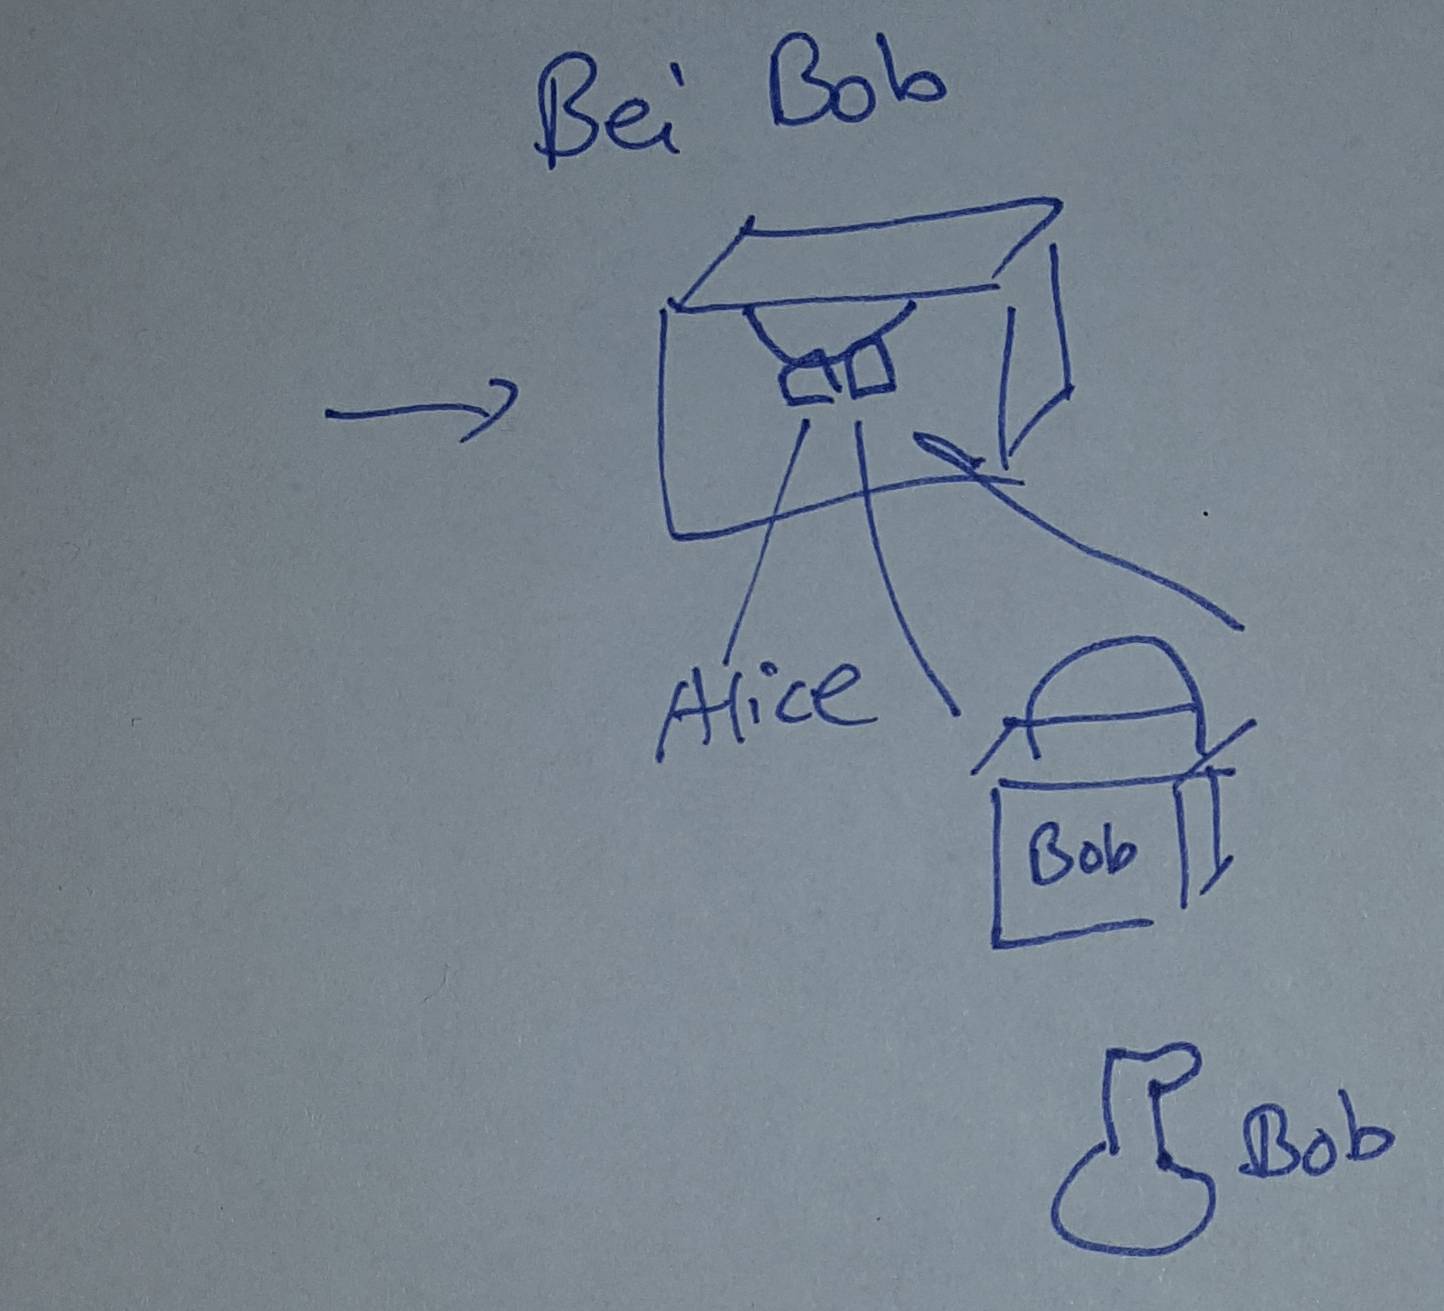 Bei Bob
Alice
Bob
Bob